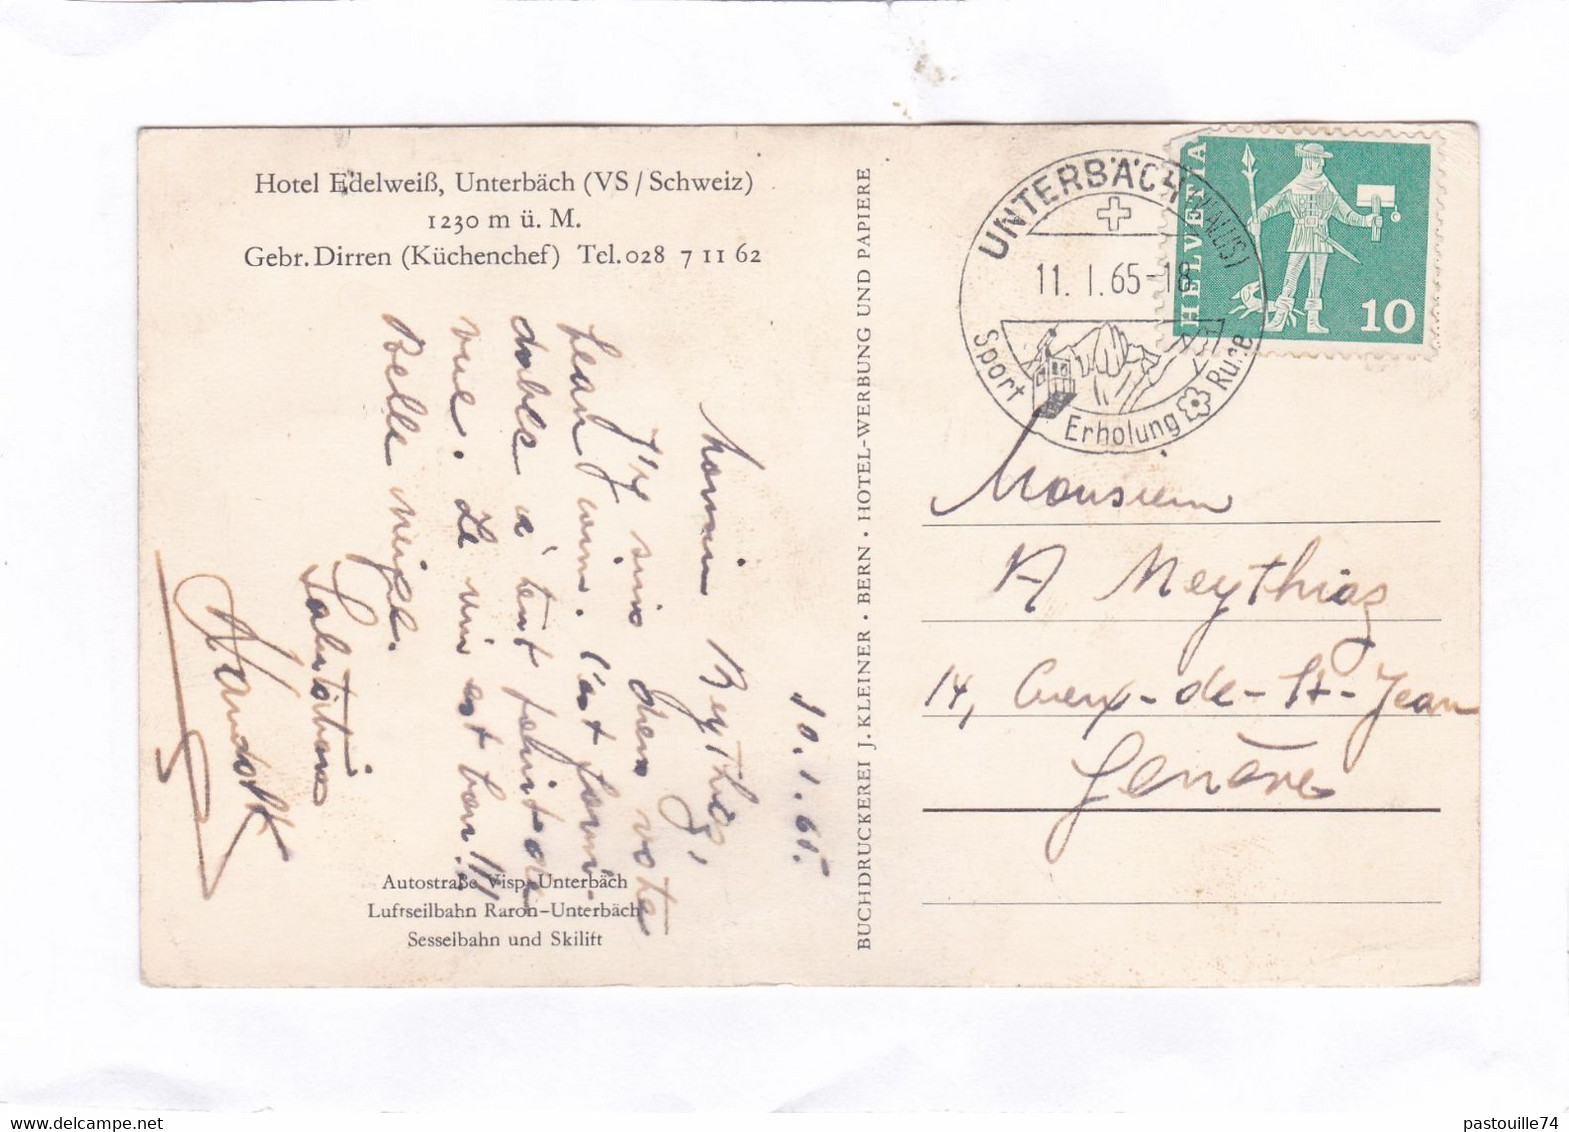 Hotel Edelweiß, Unterbäch (VS / Schweiz)
1230 m ü. M.
Gebr. Dirren (Küchenchef) Tel. 028 7 11 62
10.1.65.
Meythiaz,
J'y suis chez votre
c'est formi-
dable à tout point de
vue. Le vin est bon !!!
Belle neige.
Salutations
Autostraße Visp-Unterbäch
Luftseilbahn Raron-Unterbäch
Sesselbahn und Skilift
BUCHDRUCKEREI J. KLEINER · BERN · HOTEL-WERBUNG UND PAPIERE
UNTERBÄCH (WALLIS)
11. I. 65-18
Sport Erholung Ruhe
HELVETIA
10
Monsieur
A Meythiaz
14, Cuenx-de-St-Jean
Genève
pastouille74